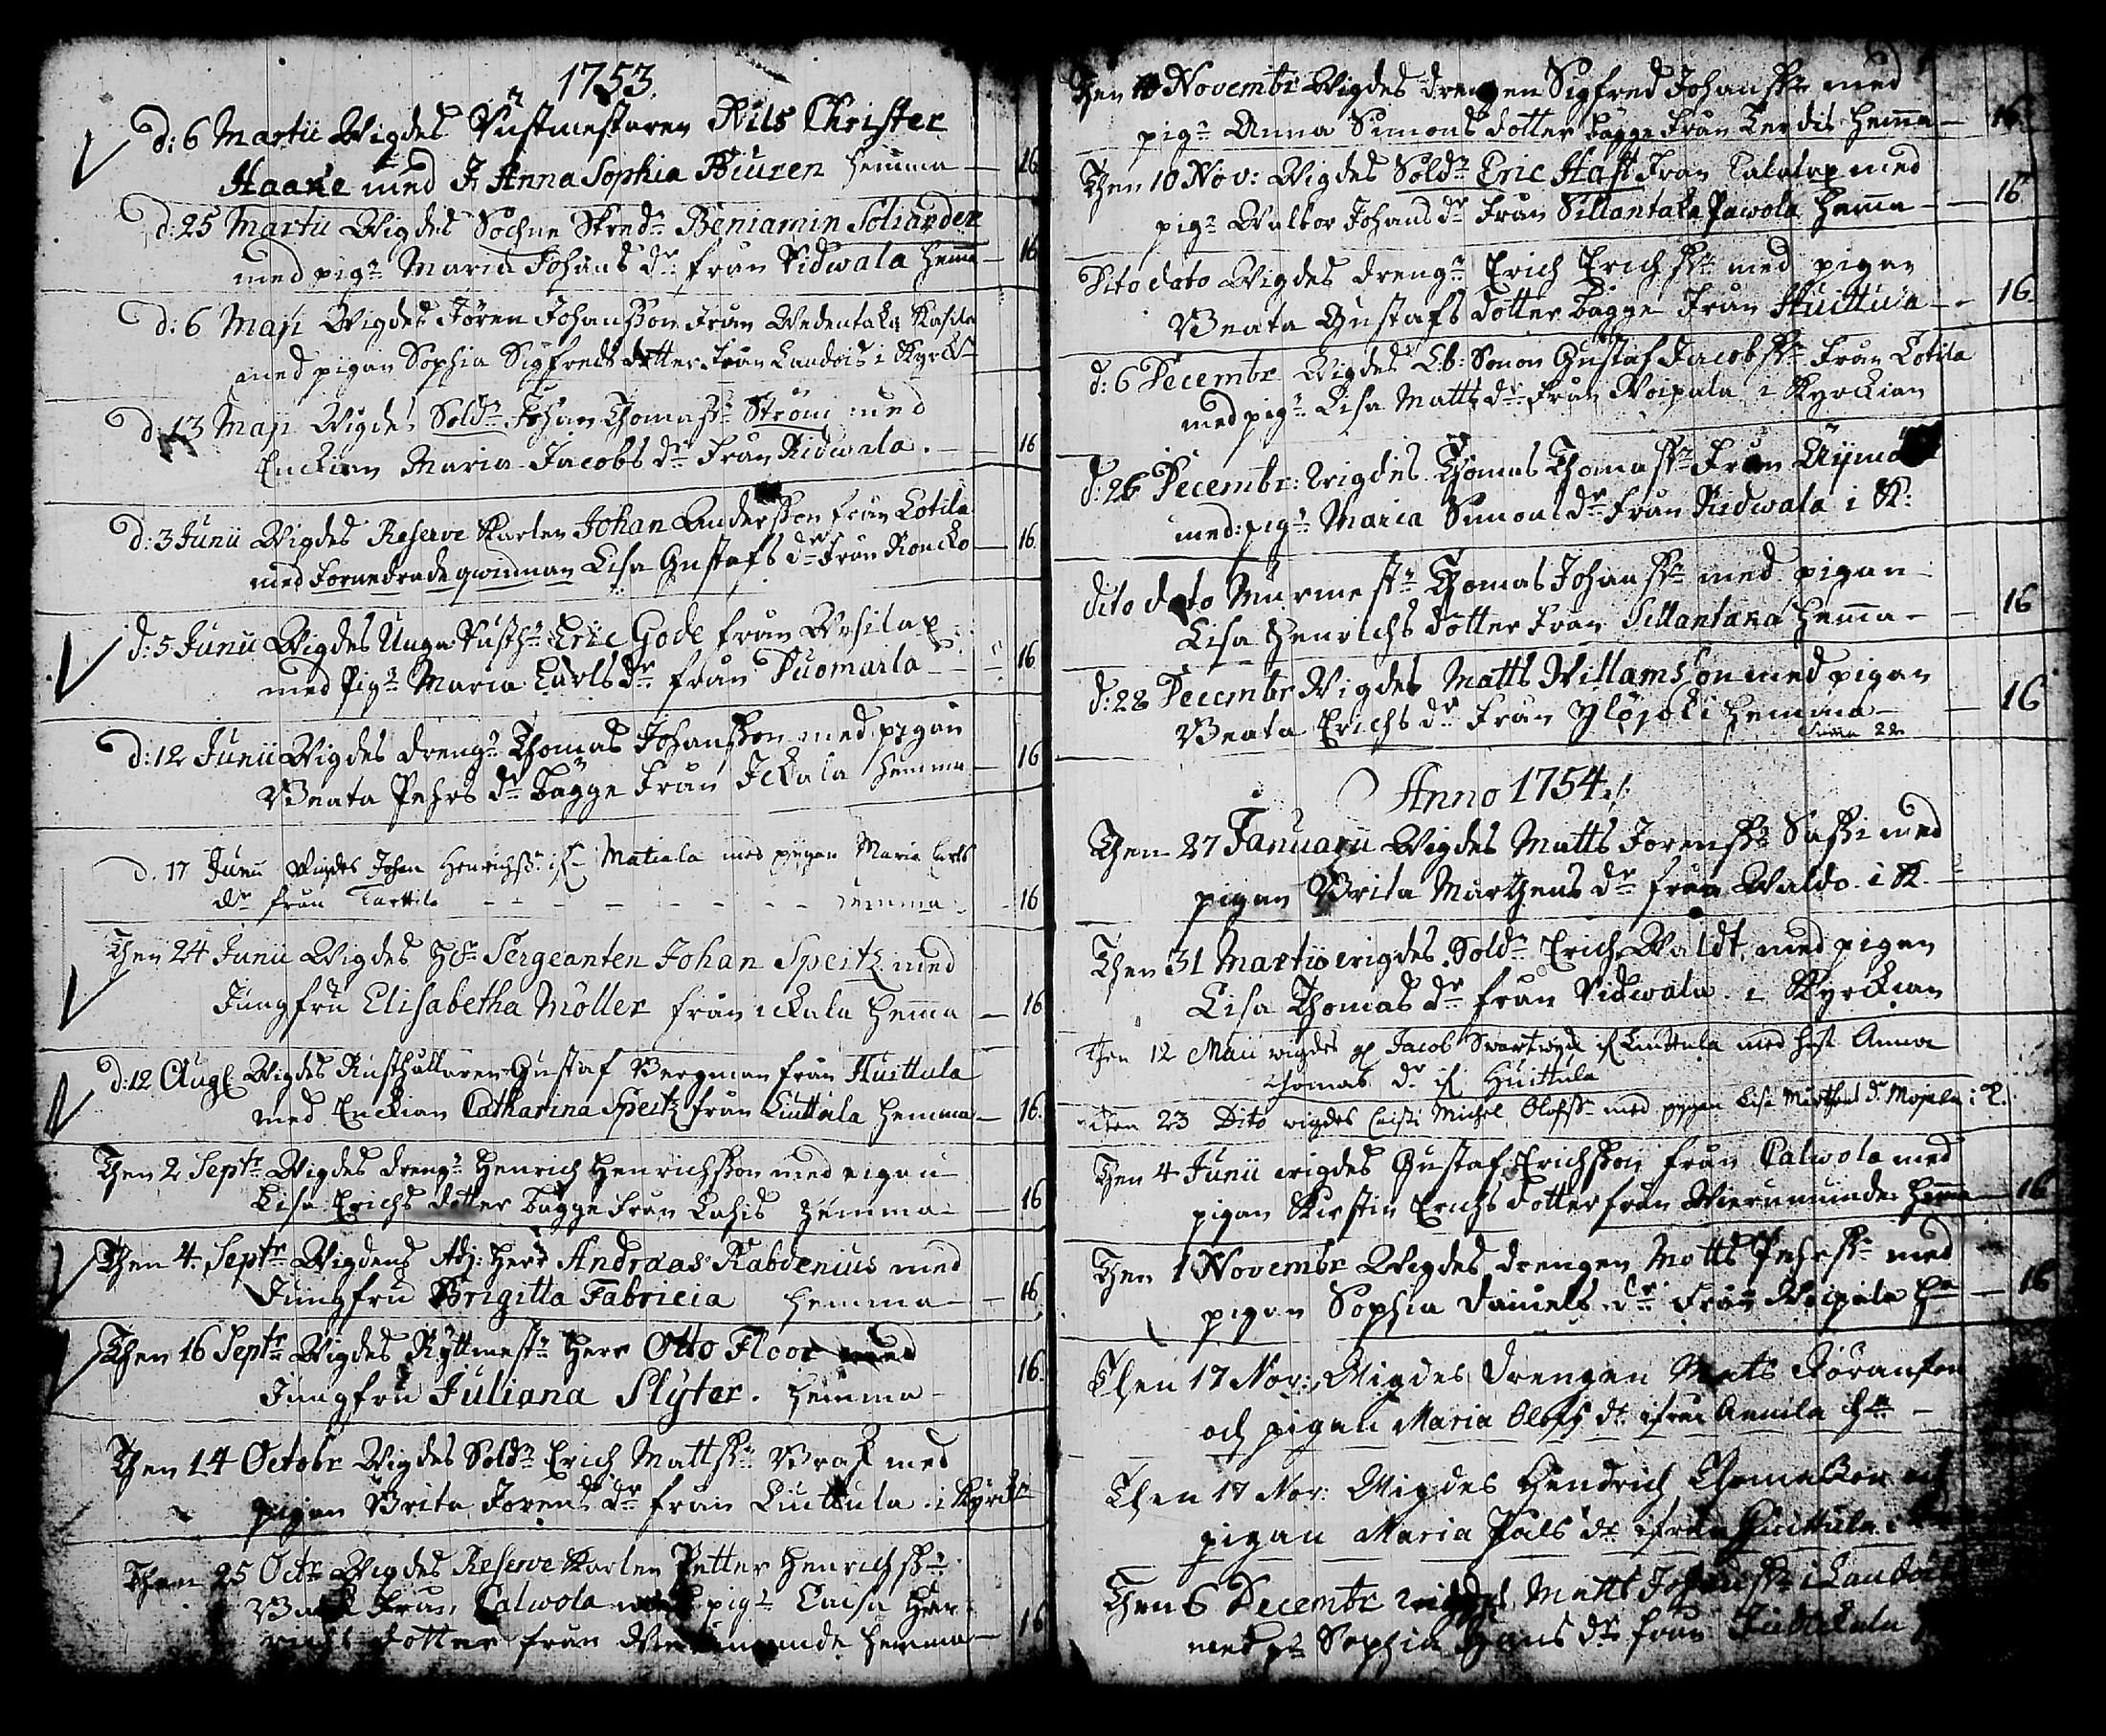 1753.
d: 6 Martii Wigdes Rustmestaren Nils Christer
Haake med J Anna Sophia Biuren hemma — 16
d: 25 Martii Wigdes Sochne Skredn Beniamin Soliander
med pign Maria Johans dr från Ridwala hemma — 16
d: 6 Maji Wigdes Jören Johansson från Wedentaka
med pigan Sophia Sigfreds dotter från Laudois i Kyrck
d. 13 Maji Wigdes Soldn Johan Thomasson Ström med
Enckian Maria Jacobs dr från Ridwala. — 16
d: 3 Junii Wigdes Reserve Karlen Johan Andersson från Lotila
med qwinnan Lisa Gustafs dr från Roncko — 16.
d: 5 Junii Wigdes Unga Rusthn Eric Gode från Wesilax
med Pign Maria Carls dr från Tuomarla — 16
d: 12 Junii Wigdes drengn Thomas Johansson med pigan
Beata Pehrs dr bägge från Ickala hemma — 16
d. 17 Junii Wigdes Johan Henrichss. if Matiala med pigan Maria Carls
dr från Tarttila hemma 16
Then 24 Junii Wigdes Hr Sergeanten Johan Speitz med
Jungfru Elisabetha Möller från ickala hemma — 16
d: 12 Aug Wigdes Rusthållaren Gustaf Bergman från Huittula
med Enckian Catharina Speitz från Liuttula hemma — 16.
Then 2 Septr Wigdes drengn Henrich Henrichsson med pigan
Lisa Erichs dotter bägge från Lahis hemma — 16
Then 4 Septr Wigdens Adj: Herr Andræas Rabdenius med
Jungfru Brigitta Fabricia hemma — 16
Then 16 Septr Wigdes Ryttmestn Herr Otto Floor med
Jungfru Juliana Slÿter. hemma — 16.
Then 14 Octobr Wigdes Soldn Erich Mattss. Brask med
pigan Brita Jörens dr från Liuttula i Kyrckn
Then 25 Octr Wigdes Reserve Karlen Petter Henrichss.
från Calwola med pign Caisa Hen-
richs dotter från hemma — 16
Then 10 Novembr Wigdes drengen Sigfred Johanss. med
pign Anna Simons dotter bägge från Kerdis hemma — 16.
Then 10 Nov: Wigdes Soldn Eric Haft från med
pign Walbor Johans dr från Sillantaka Pawola hemma — 16
Dito dato Wigdes drengn Erich Erichss. med pigan
Beata Gustafs dotter bägge från Huittula — 16.
d: 6 Decembr Wigdes L:b: Sonon Gustaf Jacobss. från Lotila
med pign Lisa Matts dr från Woipala i Kyrckian
d: 26 Decembr: wigdes Thomas Thomass. från
med: pign Maria Simons dr från Ridwala i K:
dito dato Murmestn Thomas Johanss. med pigan
Lisa Henrichs dotter från Sillantaka hemma — 16
d: 28 Decembr Wigdes Matts Willamsson med pigan
Beata Erichs dr från Ylöjoki hemma — 16
Suma 22
Anno 1754.
Then 27 Januarii Wigdes Matts Jörenss. Sassi med
pigan Brita Marthens dr från Waldo i K.
Then 31 Martii wigdes Soldn Erich Waldt med pigan
Lisa Thomas dr från Ridwala i Kyrckian
Then 12 Maii wigdes Jacob if Liuttula med Anna
Thomas dr if Huittula
Then 23 Dito wigdes Michel Olofss. med pigan Lisa Marthens dr Mojala i K.
Then 4 Junii wigdes Gustaf Erichsson från Calwola med
pigan Kirstin Erichs dotter från hemma — 16
Then 1 Novembr Wigdes drengen Matts Pehrss. med
pigan Sophia Daniels dr från Woipala — 16
Then 17 Nov: Wigdes Drengen Mats Jöranson
och pigan Maria Olofs dr ifrån Annila
Then 17 Nov: Wigdes Hendrich Thomasson och
pigan Maria Påls dr ifrån Huittula
Then 6 Decembr wigdes Matts Johanss. i Laudois
med pn Sophia Hans dr från